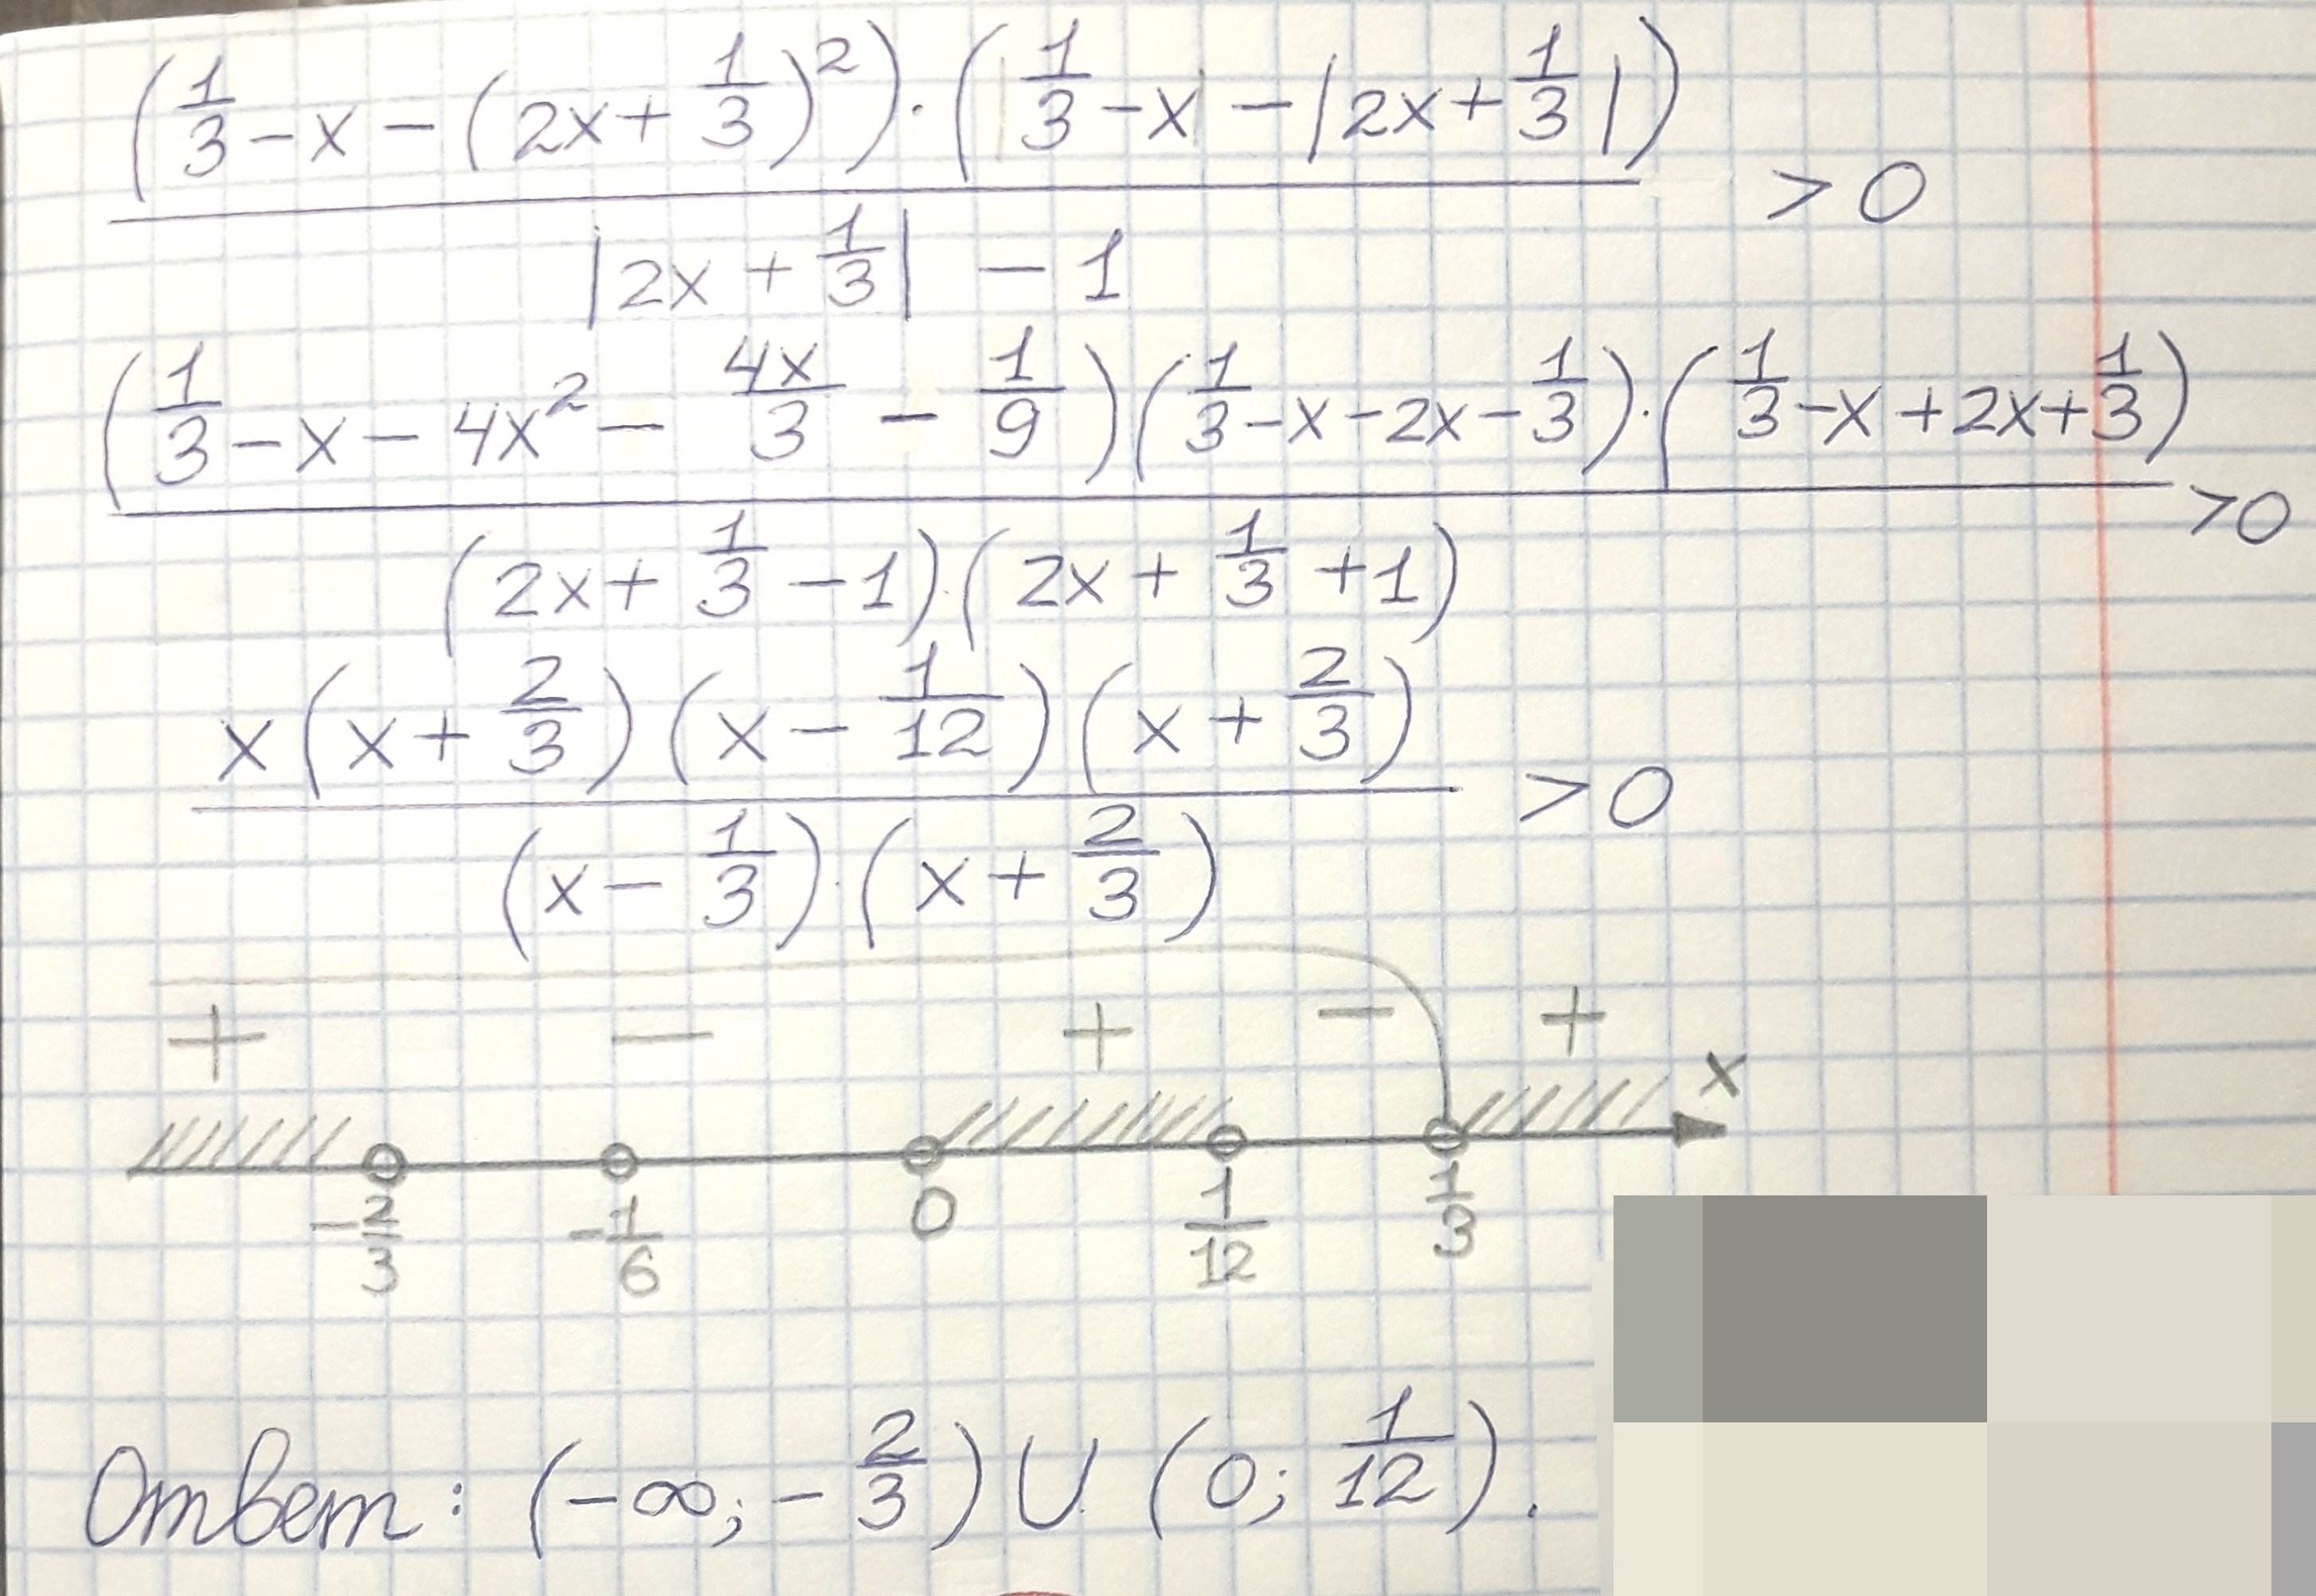 ((1/3 - x - (2x + 1/3)²) · (1/3 - x - |2x + 1/3|)) / (|2x + 1/3| - 1) > 0
((1/3 - x - 4x² - 4x/3 - 1/9)(1/3 - x - 2x - 1/3) · (1/3 - x + 2x + 1/3)) / ((2x + 1/3 - 1) · (2x + 1/3 + 1)) > 0
(x(x + 2/3)(x - 1/12)(x + 2/3)) / ((x - 1/3) · (x + 2/3)) > 0
+ − + − +
x
-2/3 -1/6 0 1/12 1/3
Ответ: (-∞; -2/3) ∪ (0; 1/12).